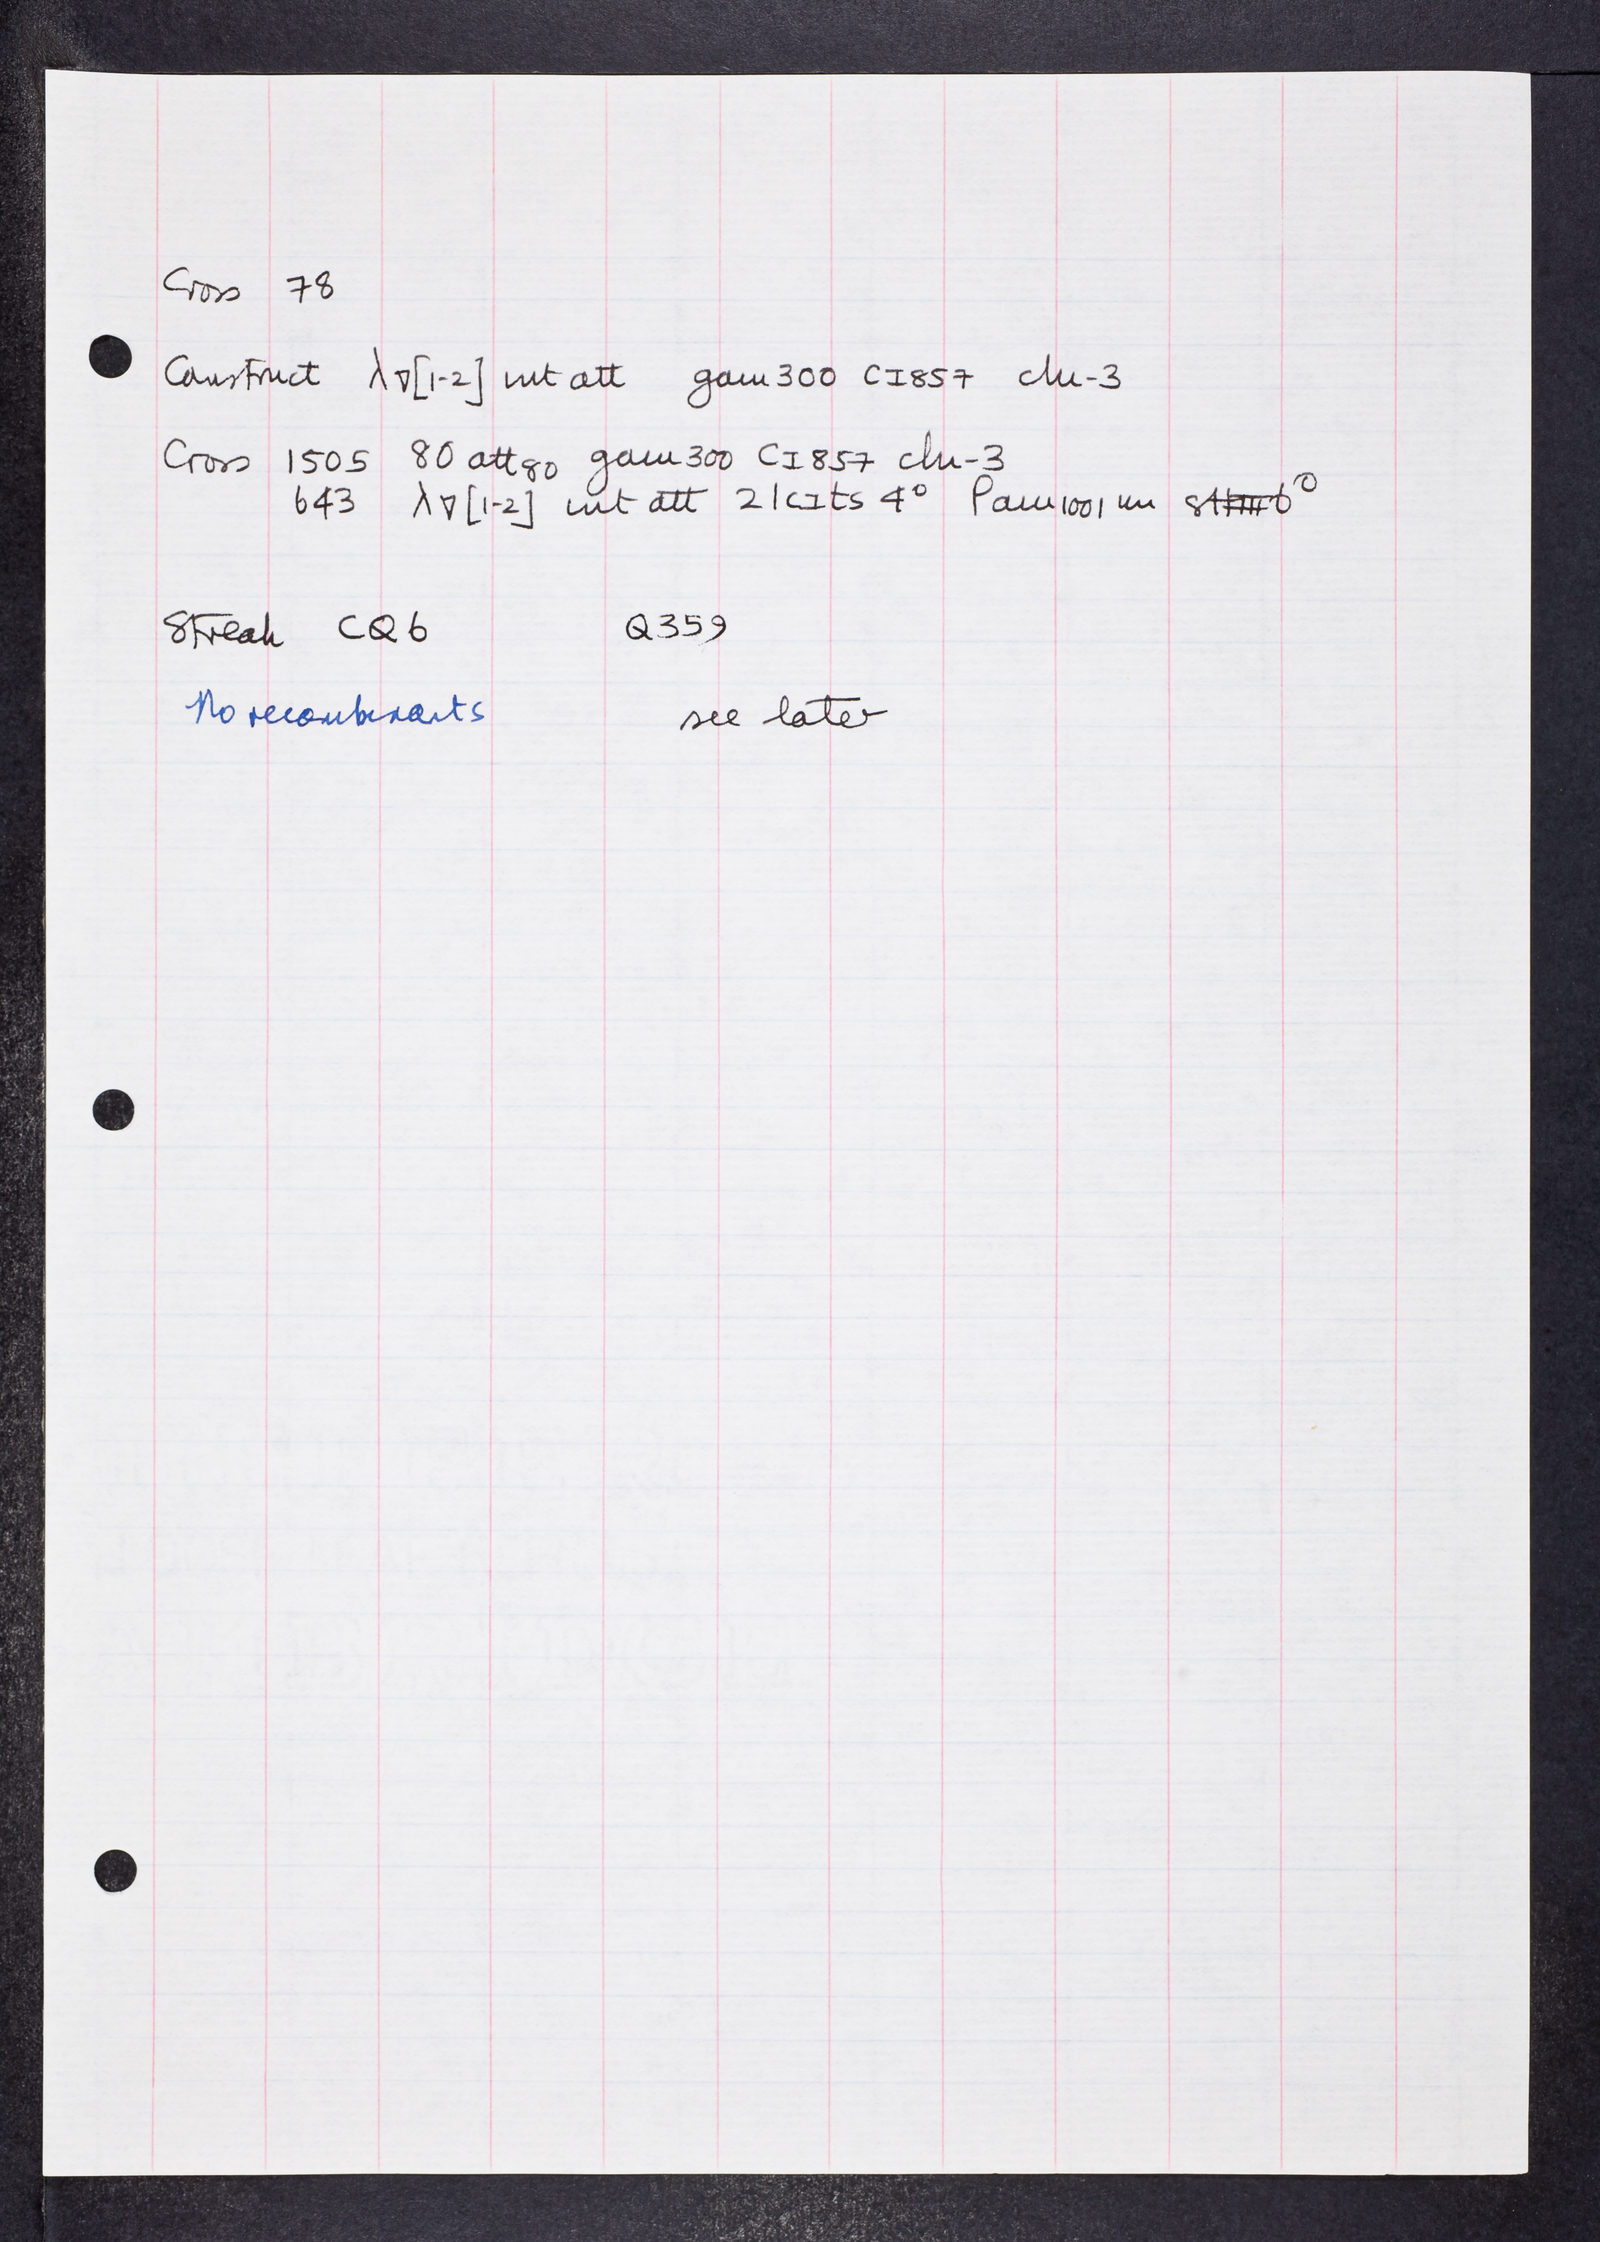 Cross 78
Construct λ∇[1-2] int att gam300 CI857 chi-3
Cross 1505 80 att80 gam300 CI857 chi-3
643 λ∇[1-2] int att 21CIts 4° Pam1001 nin 6°
Streak CQ6 Q359
No recombinants see later